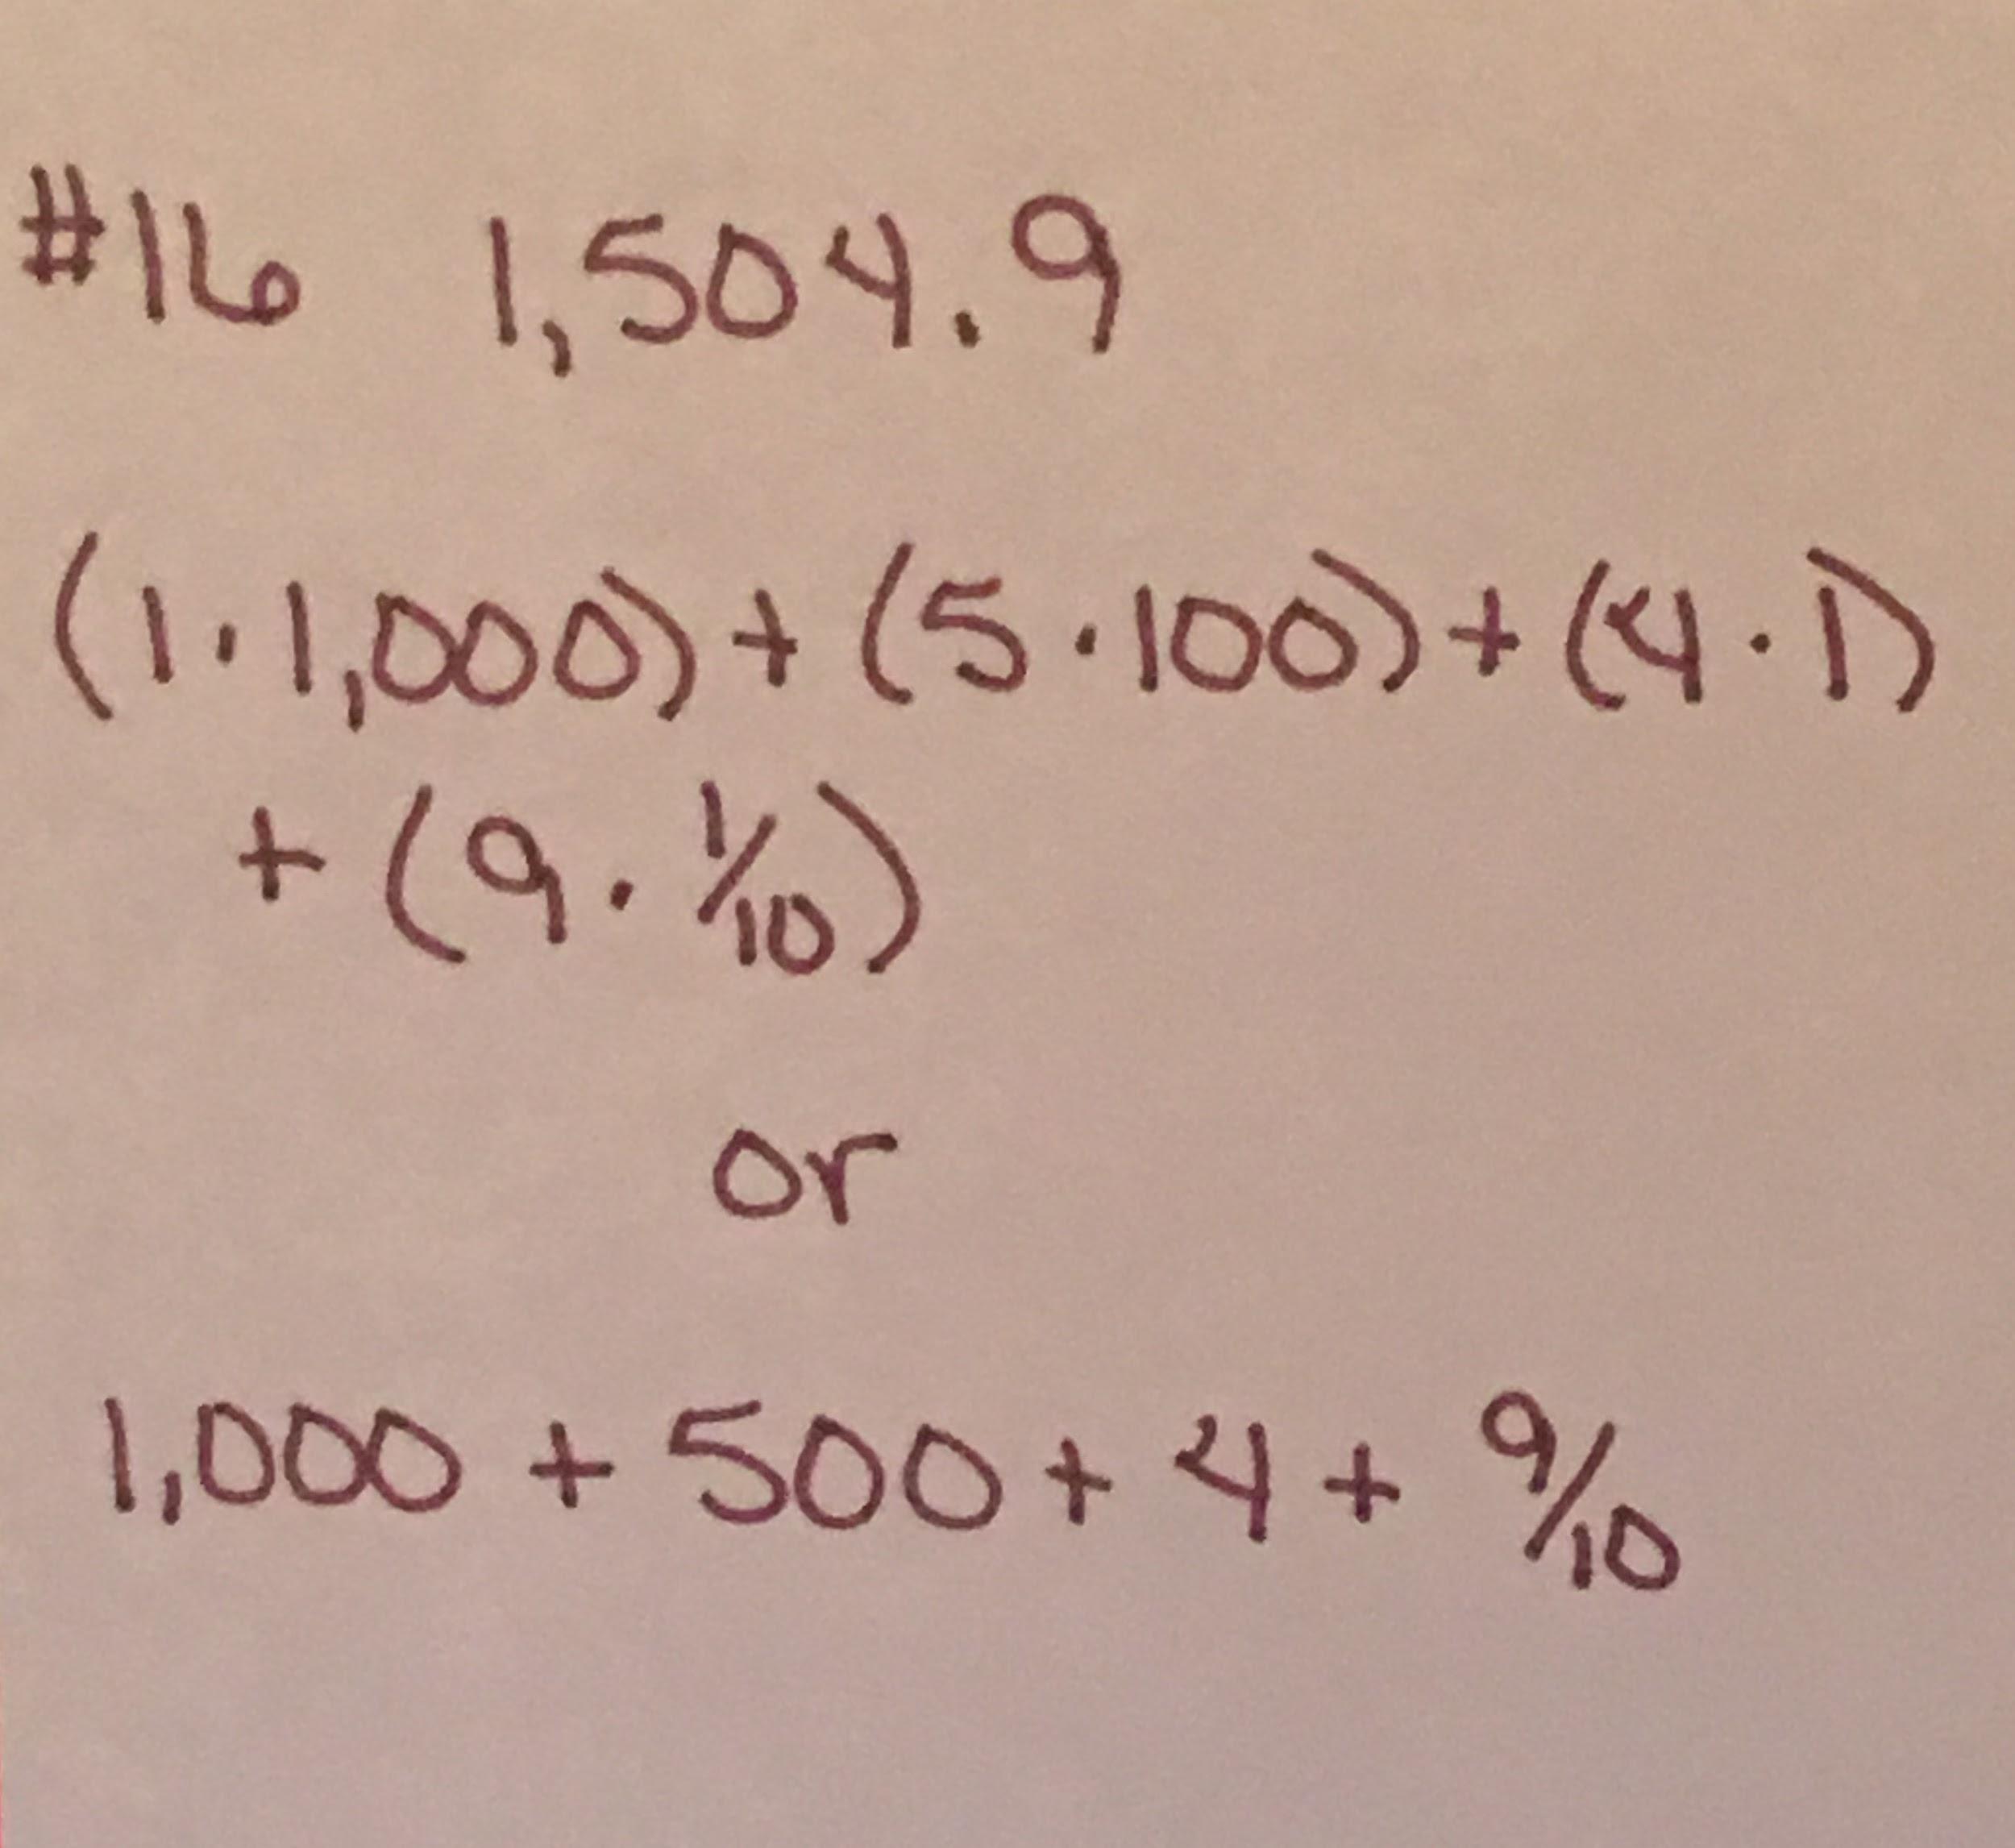 #16 1,504.9
(1·1,000)+(5·100)+(4·1)
+(9·1/10)
or
1,000 + 500 + 4 + 9/10